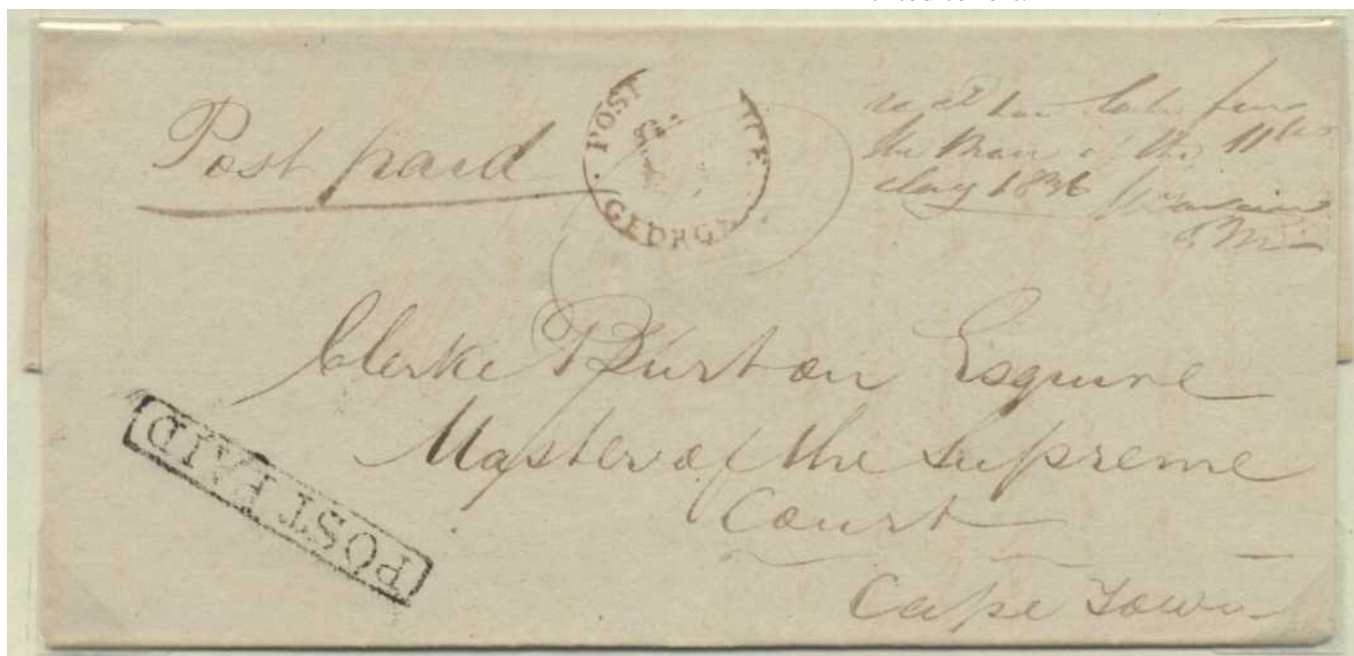 Post paid
POST ICE
GEORGE
too late for
the Mail of the 11th
May 1836
P M
Clerke Burton Esquire
Master of the Supreme
Court
Cape Town
POST PAID